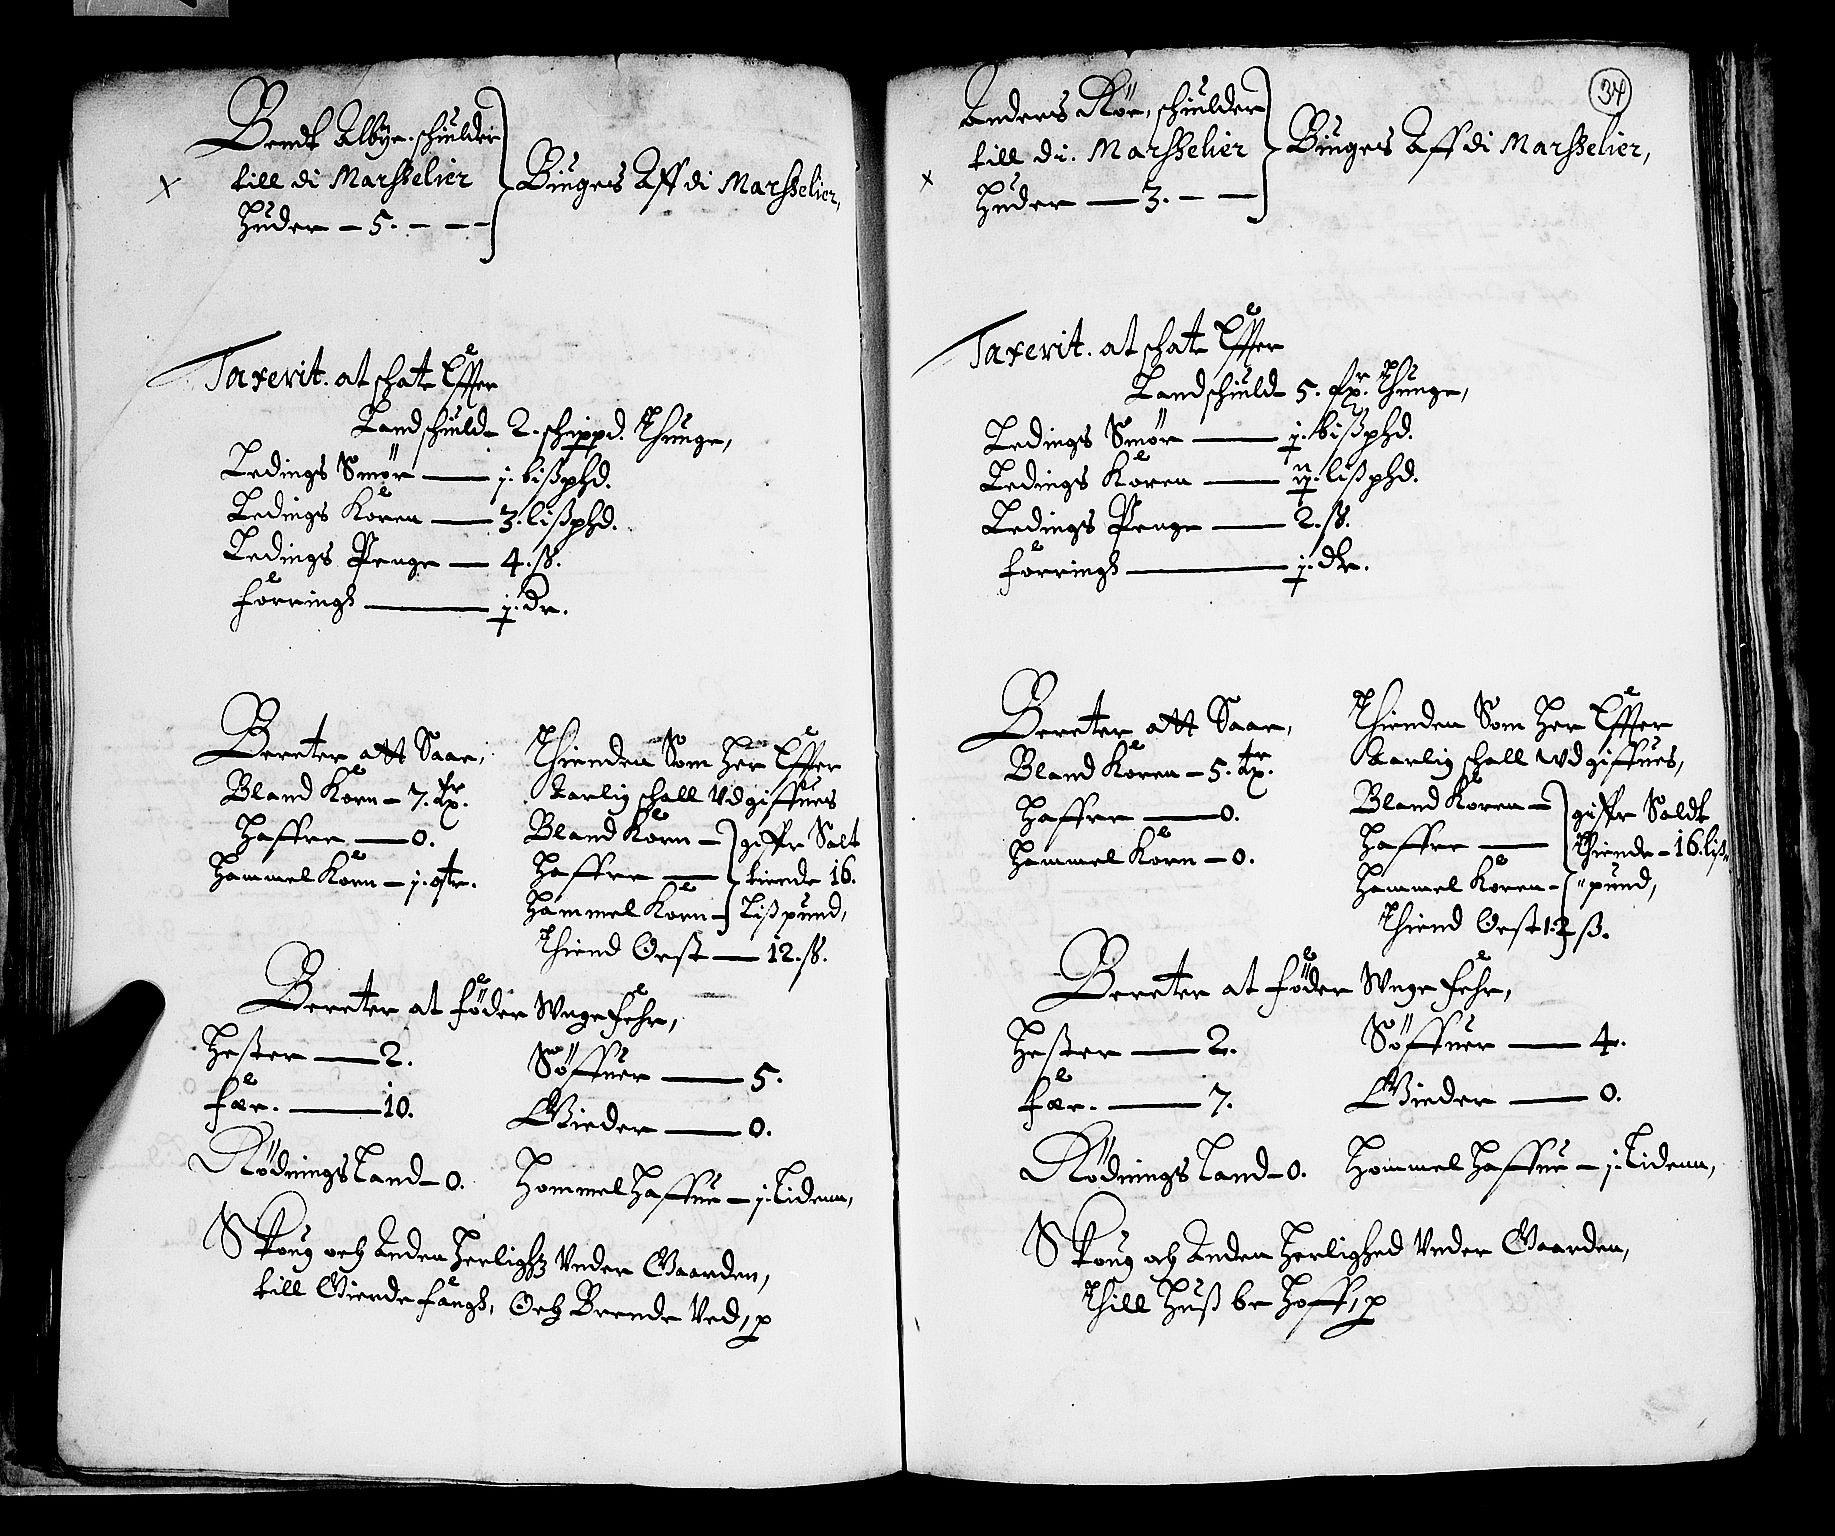 Bendt Albye. schiulder
till di Marsselier
Huder – 5. – – –
Bÿuges Aff di Marsselier,
x
Taxerit. at schate Effter
Landschiuld 2. schippd. Thunge,
Ledings Smör — j. bißphd.
Ledings Koren — 3. lißphd.
Ledings Penge — 4. ß.
forrings — j. dr.
Bereter att Saar,
Bland Korn – 7. tr.
Haffre — 0.
Hammel Korn – j. qtr.
Thienden Som Her Effter
Aarlig schall Udgiffues
Bland Korn –
Haffre —
Hammel Korn –
giffr Salt
tiende 16.
Lißpund,
Thiend Oest — 12. ß.
Bereter at föder Wnge fehr,
Hester — 2.
fær. — 10.
Rödnings Land – 0.
Söffuer — 5.
Gieder — 0.
Hommel Haffue – j. Liden,
Skoug och Anden Herlighz Under Gaarden,
till Gierde fangs, Och Brende Ved, p
34
Anders Rör, schiulder
till di. Marsselier
Huder — 3. – –
Biuges Aff di Marsselier,
x
Taxerit. at schate Effter
Landschiuld 5. fr. Thunge,
Ledings Smör — j. bißphd.
Ledings Koren — ij. lißphd.
Ledings Penge — 2. ß.
forrings — j. dr.
Bereter att Saar,
Bland Koren – 5. tr.
Haffre — 0.
Hammel Korn – 0.
Thienden Som Her Effter
Aarlig schall wdgiffues,
Bland Koren –
Haffre —
Hammel Koren –
giffr Saldt
Thiende – 16. liß=
=pund,
Thiend Oest 12 ß.
Bereter at föder Wnge fehr,
Hester — 2.
fær. — 7.
Rödnings Land – 0.
Söffuer — 4.
Gieder — 0.
Hommel Haffue – j. Liden,
Skoug och Anden Herlighed Under Gaarden,
Thill Huß be Hoff, p